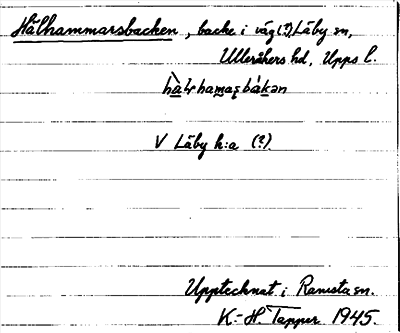 Hålhammarsbacken, backe i väg (?) Läby sn,
Ulleråkers hd, Upps l.
V Läby h:a (?).
Upptecknat i Ramsta sn.
K.-H. Tapper 1945.